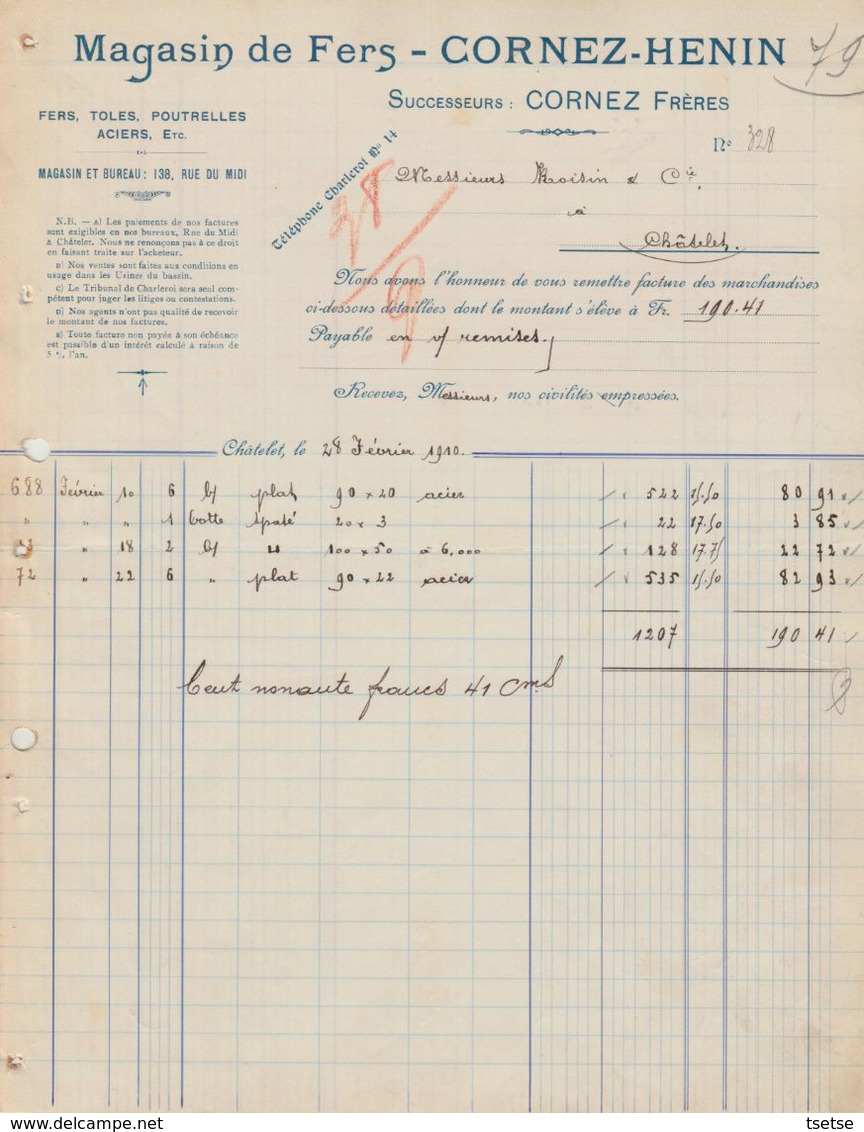 Magasin de Fers - CORNEZ-HENIN
79
SUCCESSEURS : CORNEZ FRÈRES
FERS, TOLES, POUTRELLES
ACIERS, ETC.
MAGASIN ET BUREAU : 138, RUE DU MIDI
Téléphone Charleroi No 14
No 328
Messieurs Moisin & Cie
à
Châtelet.
N.B. — A) Les paiements de nos factures
sont exigibles en nos bureaux, Rue du Midi
à Châtelet. Nous ne renonçons pas à ce droit
en faisant traite sur l'acheteur.
B) Nos ventes sont faites aux conditions en
usage dans les Usines du bassin.
C) Le Tribunal de Charleroi sera seul com-
pétent pour juger les litiges ou contestations.
D) Nos agents n'ont pas qualité de recevoir
le montant de nos factures.
E) Toute facture non payée à son échéance
est passible d'un intérêt calculé à raison de
5 % l'an.
38/9
Nous avons l'honneur de vous remettre facture des marchandises
ci-dessous détaillées dont le montant s'élève à Fr. 190.41
Payable en v/ remises.
Recevez, Messieurs, nos civilités empressées.
Châtelet, le 28 Février 1910.
688 Février 10 6 b/ plat 90 x 20 acier 522 15.50 80 91
" " " 1 botte 20 x 3 22 17.50 3 85
" 18 2 b/ U 100 x 50 à 6,000 128 17.75 22 72
72 " 22 6 " plat 90 x 22 acier 535 15.50 82 93
1207 190 41
Cent nonante francs 41 cms
tsetse